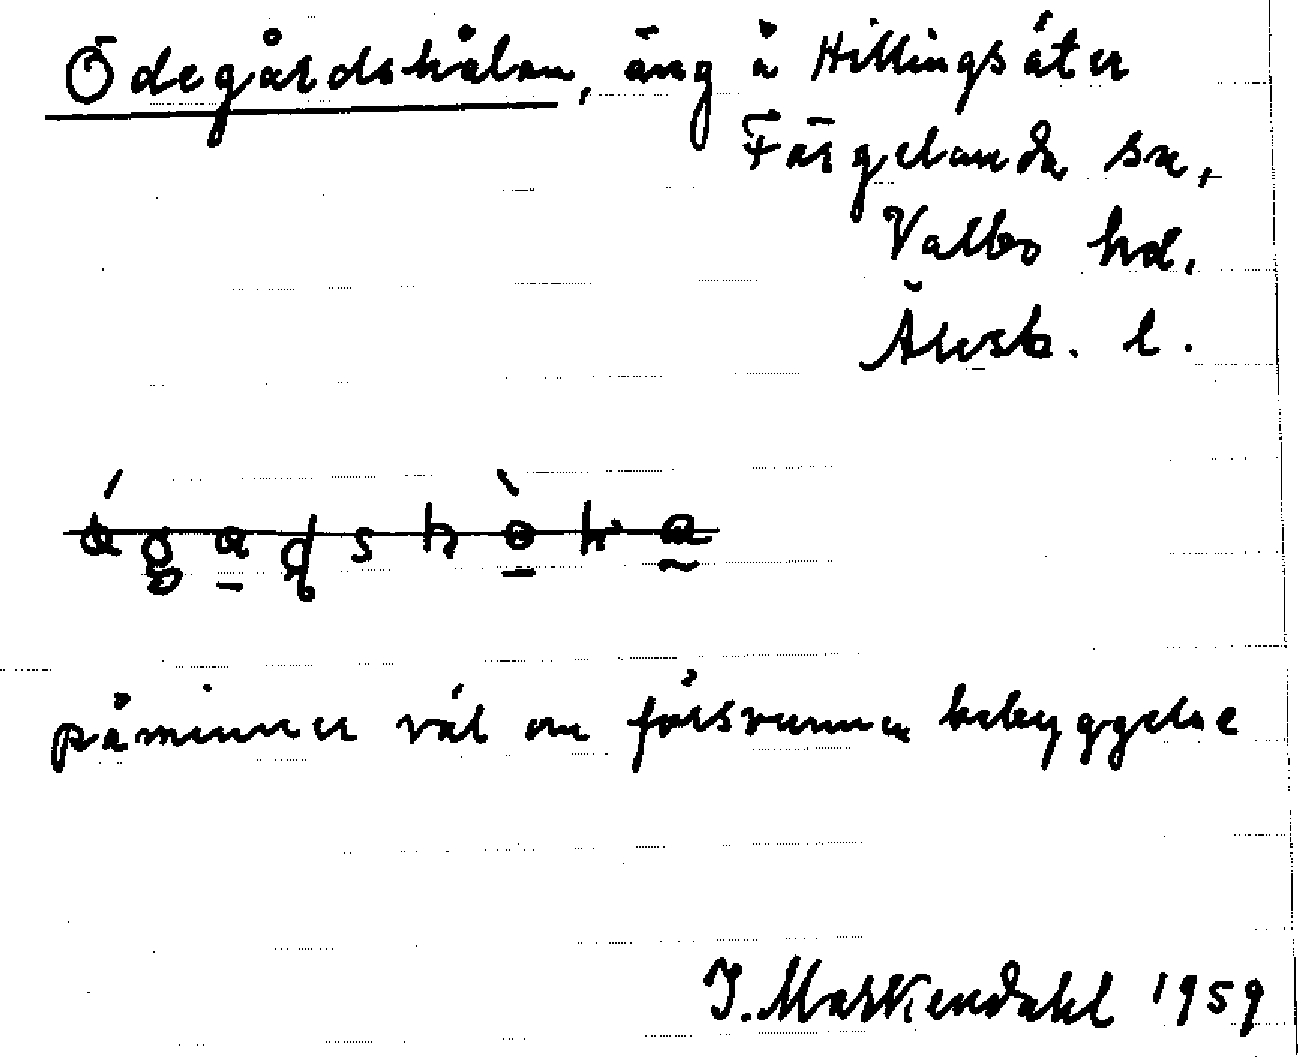 Ödegårdshålan, äng å Hillingsäter
Färgelanda sn,
Valbo hd.
Älvsb. l.
påminner väl om försvunnen bebyggelse
J. Markendahl 1959